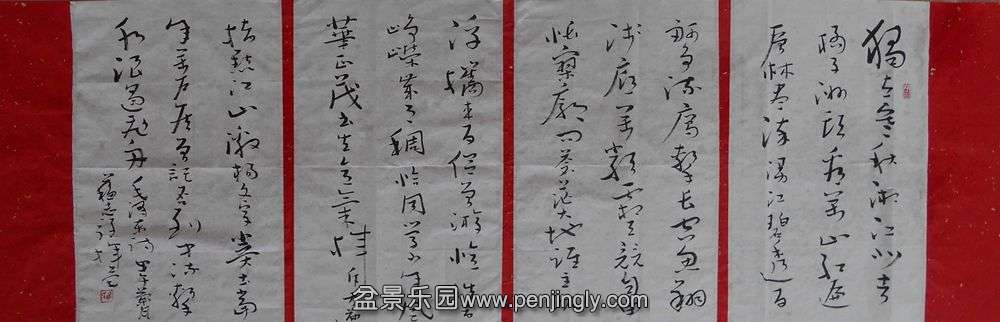 獨立寒秋湘江北去
橘子洲頭看萬山红遍
层林尽染漫江碧透百
舸争流鹰擊长空鱼翔
浅底萬類霜天競自由
怅寥廓问苍茫大地谁主
浮携来百侣曾游忆昔
峥嵘岁月稠恰同学少年风
華正茂书生意气挥斥方遒
指點江山激扬文字粪土当
年萬户侯曾記否到中流擊
水浪遏飛舟 毛泽东词 甲午
盆景乐园www.penjingly.com